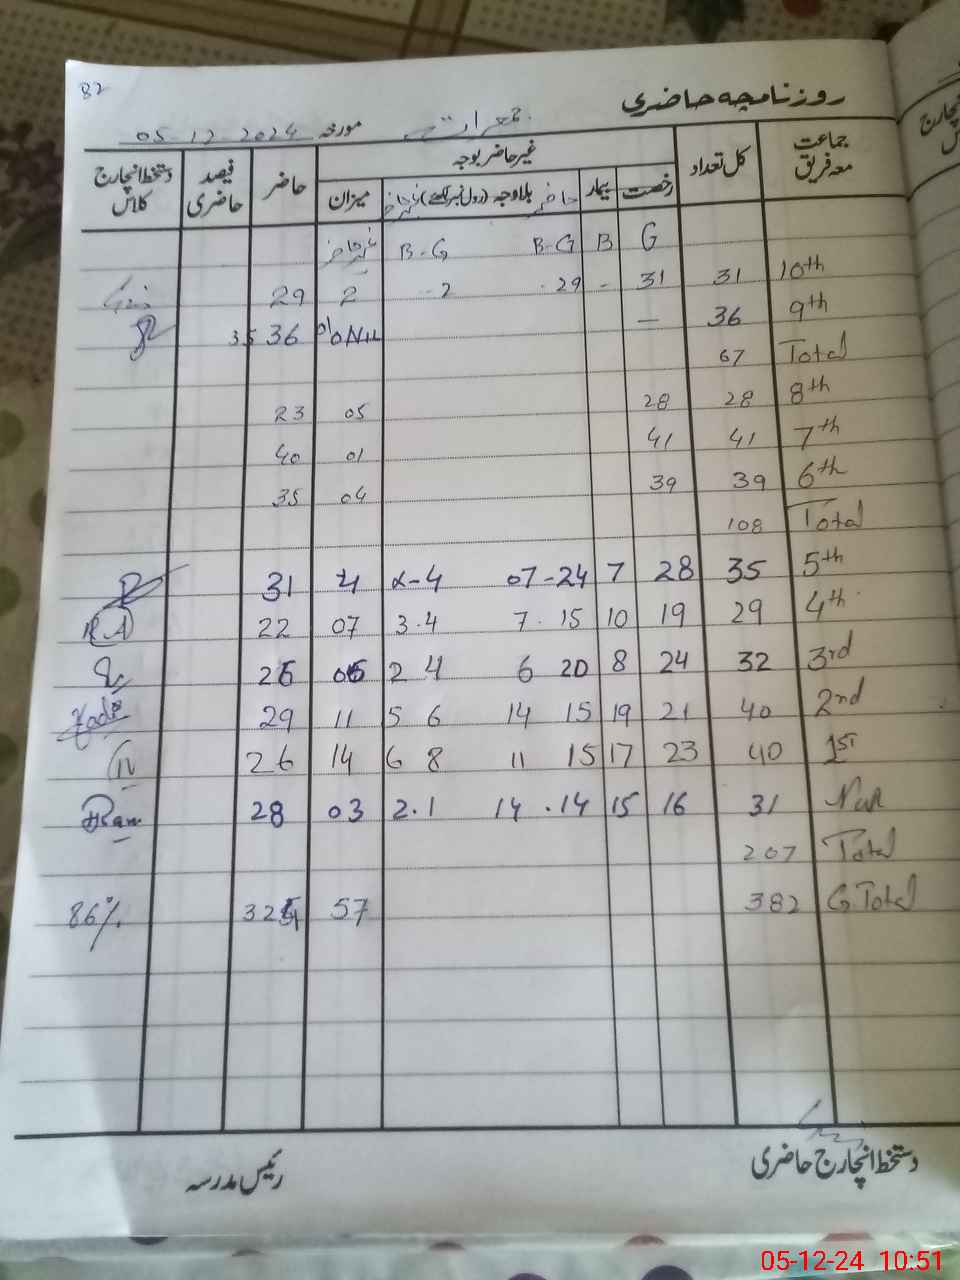 82
روزنامچہ حاضری
جمعرات مورخہ 05-12-2024
جماعت معہ فریق کل تعداد غیر حاضر بوجہ حاضر فیصد حاضری دستخط انچارج کلاس
رخصت بیمار حاضر بلاوجہ (رول نمبر لکھئے) غیر حاضر میزان
G B B-G B-G غیر حاضر
10th 31 31 - 29 2 2 29
9th 36 — Nil 36 35
Total 67
8th 28 28 05 23
7th 41 41 01 40
6th 39 39 04 35
Total 108
5th 35 28 7 07-24 4 31
4th 29 19 10 7. 15 3.4 07 22
3rd 32 24 8 6 20 2 4 06 26
2nd 40 21 19 14 15 5 6 11 29
1st 40 23 17 11 15 6 8 14 26
Nur 31 16 15 14 .14 2.1 03 28
Total 207
G Total 382 57 325 86%
دستخط انچارج حاضری رئیس مدرسہ
05-12-24 10:51